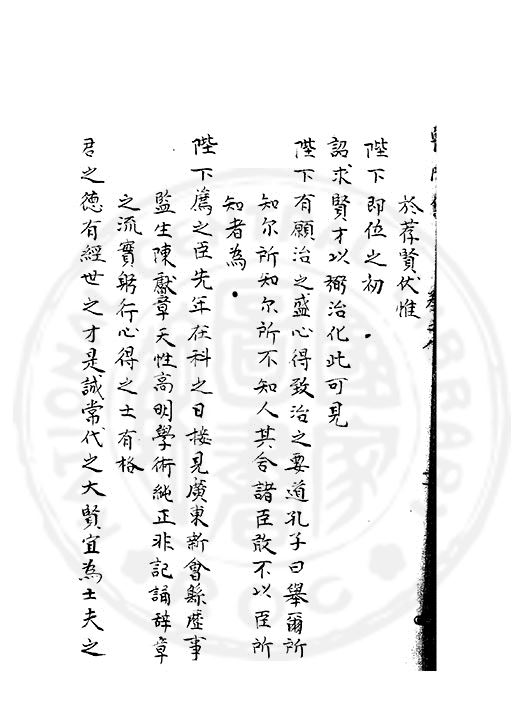 於荐賢伏惟
陛下即位之初
詔求賢才以弼治化此可見
陛下有願治之盛心得致治之要道孔子曰舉爾所
知尔所知尔所不知人其舍諸臣敢不以臣所
知者為
陛下薦之臣先年在科之日接見廣東新會縣歷事
監生陳獻章天性高明學術純正非記誦辞章
之流實躬行心得之士有格
君之德有經世之才是誠當代之大賢宜為士夫之